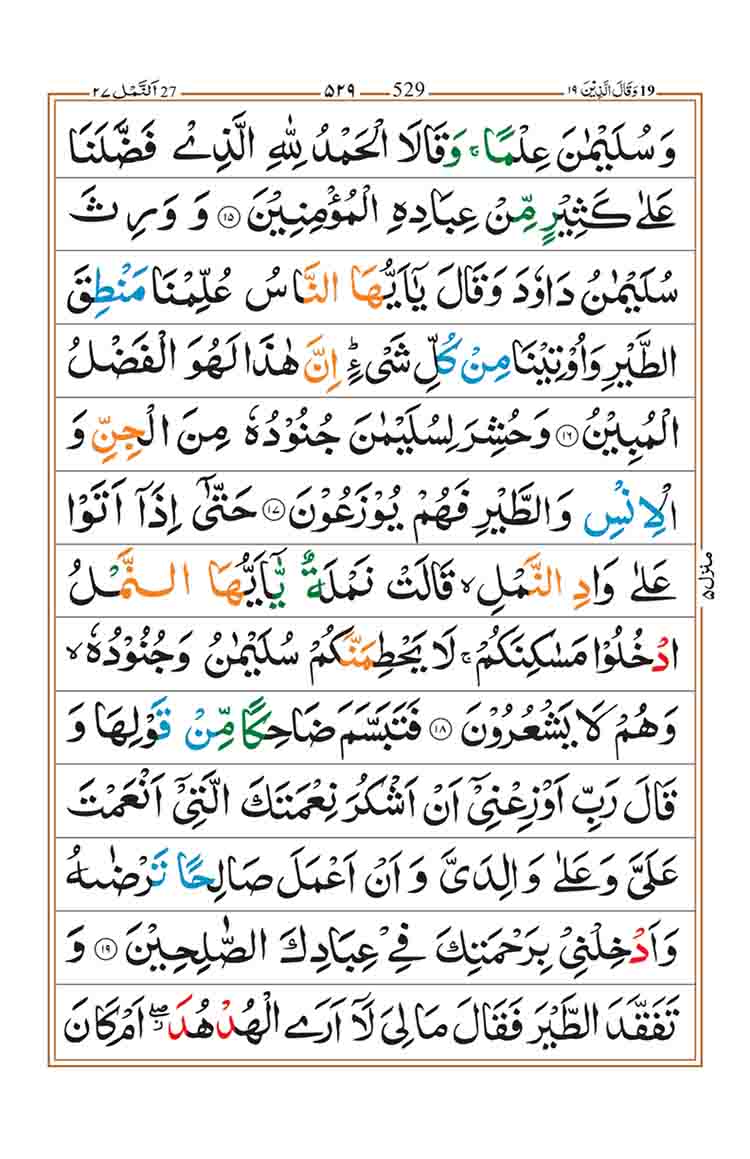 19 وَقَالَ الَّذِيْنَ ١٩
529 ۵۲۹
27 اَلنَّمْل ٢٧
وَ سُلَيْمٰنَ عِلْمًا ۚ وَ قَالَا الْحَمْدُ لِلّٰهِ الَّذِيْ فَضَّلَنَا
عَلٰى كَثِيْرٍ مِّنْ عِبَادِهِ الْمُؤْمِنِيْنَ ١٥ وَ وَرِثَ
سُلَيْمٰنُ دَاوٗدَ وَقَالَ يٰٓاَيُّهَا النَّاسُ عُلِّمْنَا مَنْطِقَ
الطَّيْرِ وَاُوْتِيْنَا مِنْ كُلِّ شَيْءٍ ؕ اِنَّ هٰذَا لَهُوَ الْفَضْلُ
الْمُبِيْنُ ١٦ وَحُشِرَ لِسُلَيْمٰنَ جُنُوْدُهٗ مِنَ الْجِنِّ وَ
الْاِنْسِ وَالطَّيْرِ فَهُمْ يُوْزَعُوْنَ ١٧ حَتّٰۤى اِذَاۤ اَتَوْا
عَلٰى وَادِ النَّمْلِ ۙ قَالَتْ نَمْلَةٌ يّٰۤاَيُّهَا النَّمْلُ
ادْخُلُوْا مَسٰكِنَكُمْ ۚ لَا يَحْطِمَنَّكُمْ سُلَيْمٰنُ وَجُنُوْدُهٗ ۙ
وَهُمْ لَا يَشْعُرُوْنَ ١٨ فَتَبَسَّمَ ضَاحِكًا مِّنْ قَوْلِهَا وَ
قَالَ رَبِّ اَوْزِعْنِيْۤ اَنْ اَشْكُرَ نِعْمَتَكَ الَّتِيْۤ اَنْعَمْتَ
عَلَيَّ وَعَلٰى وَالِدَيَّ وَ اَنْ اَعْمَلَ صَالِحًا تَرْضٰىهُ
وَاَدْخِلْنِيْ بِرَحْمَتِكَ فِيْ عِبَادِكَ الصّٰلِحِيْنَ ١٩ وَ
تَفَقَّدَ الطَّيْرَ فَقَالَ مَا لِيَ لَاۤ اَرَى الْهُدْهُدَ ۖ اَمْ كَانَ
منزل ۵